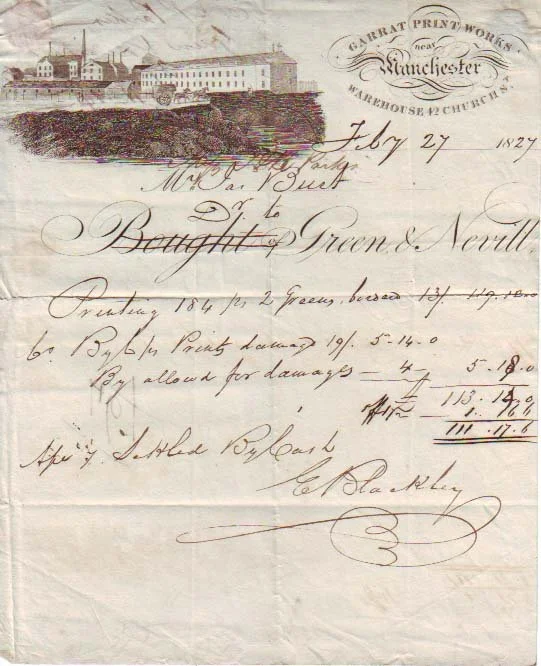 GARRAT PRINT WORKS
near
Manchester
WAREHOUSE 42 CHURCH ST
Feby 27 1827
Mr Jas Buct
Dr to
Bought of Green & Nevill
Printing 184 ps 2 Greens, 13/. 119.
By 6 ps Prints damagd 19/. 5-14-0
By allowd for damages - 4 5.18.0
113.14.0
1.16.6
111.17.6
Apr 7 Settled By Cash
E Blackley